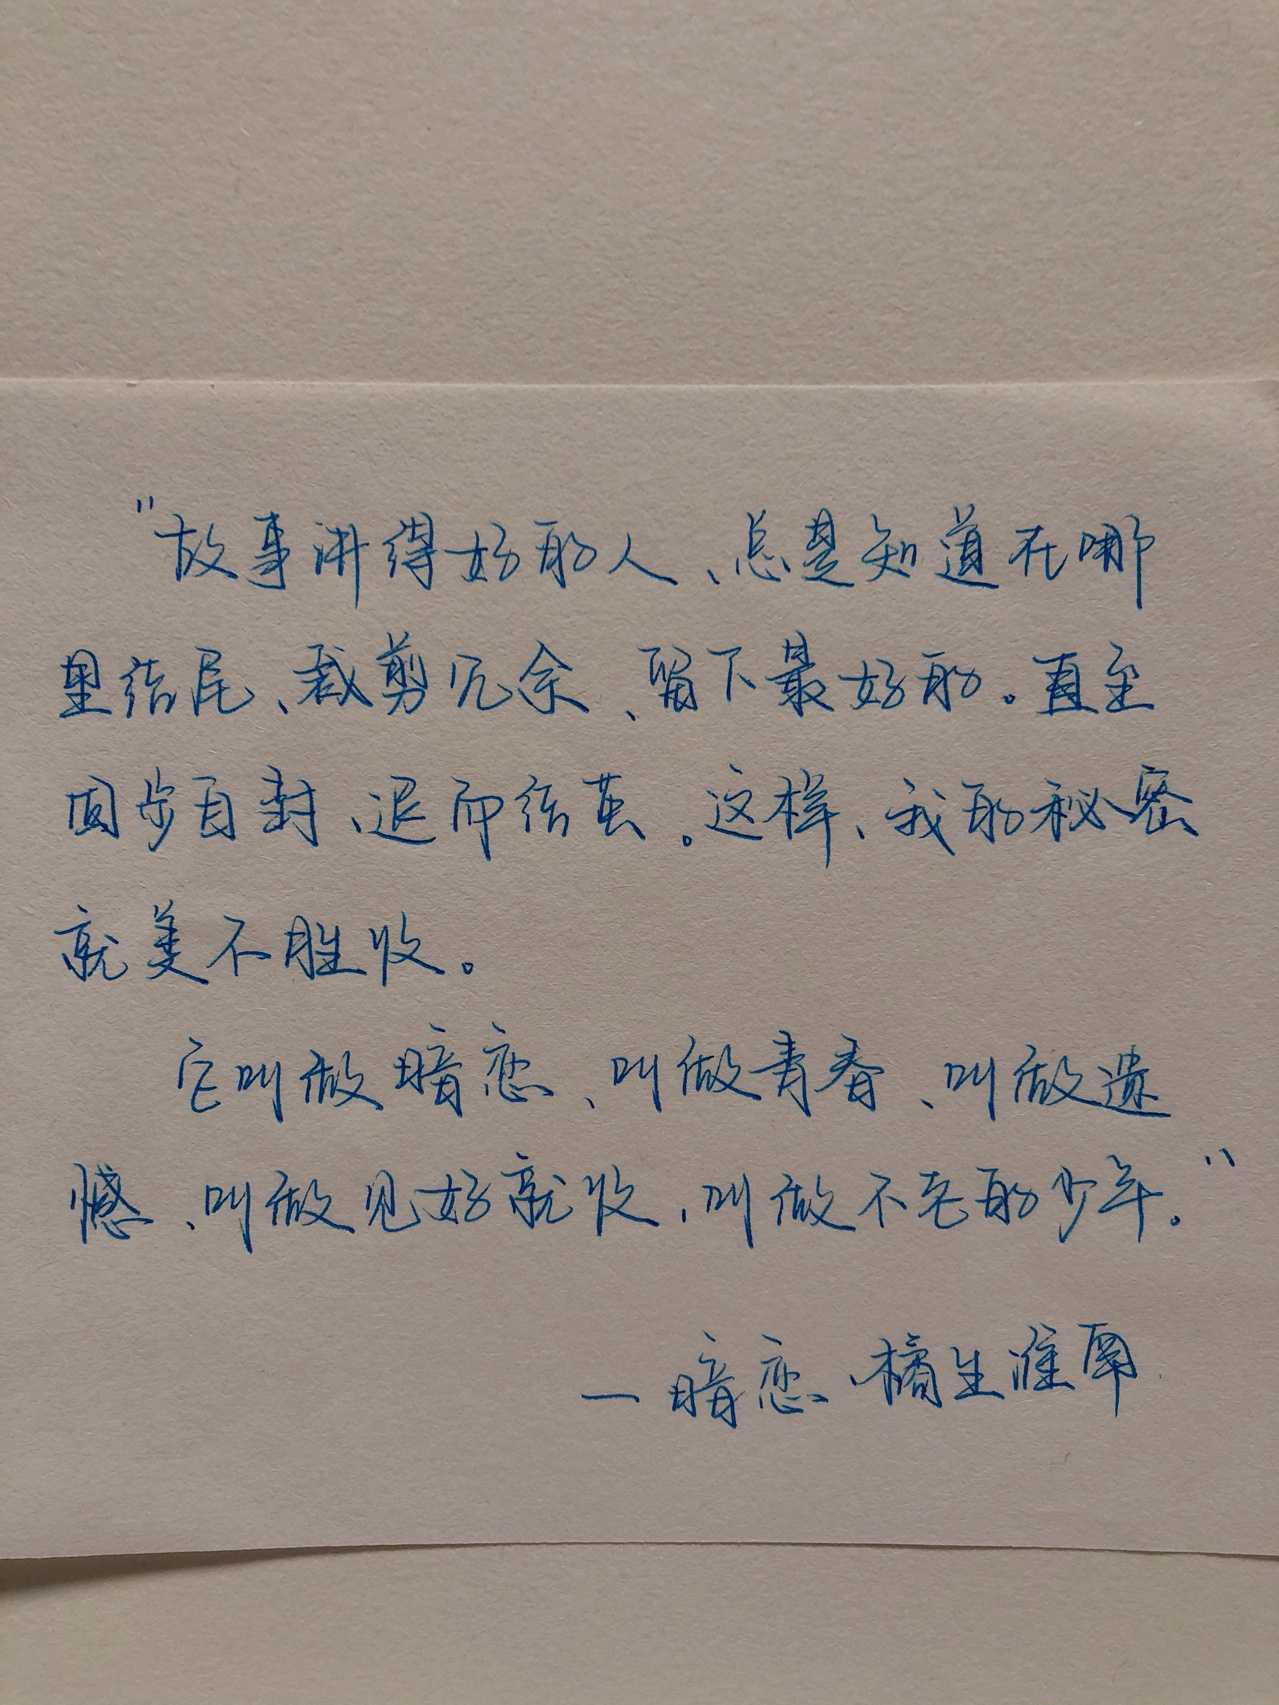 "故事讲得好的人、总是知道在哪
里结尾、裁剪冗余、留下最好的。直至
固步自封、退而结茧。这样、我的秘密
就美不胜收。
它叫做暗恋、叫做青春、叫做遗
憾、叫做见好就收、叫做不老的少年。"
—暗恋、橘生淮南